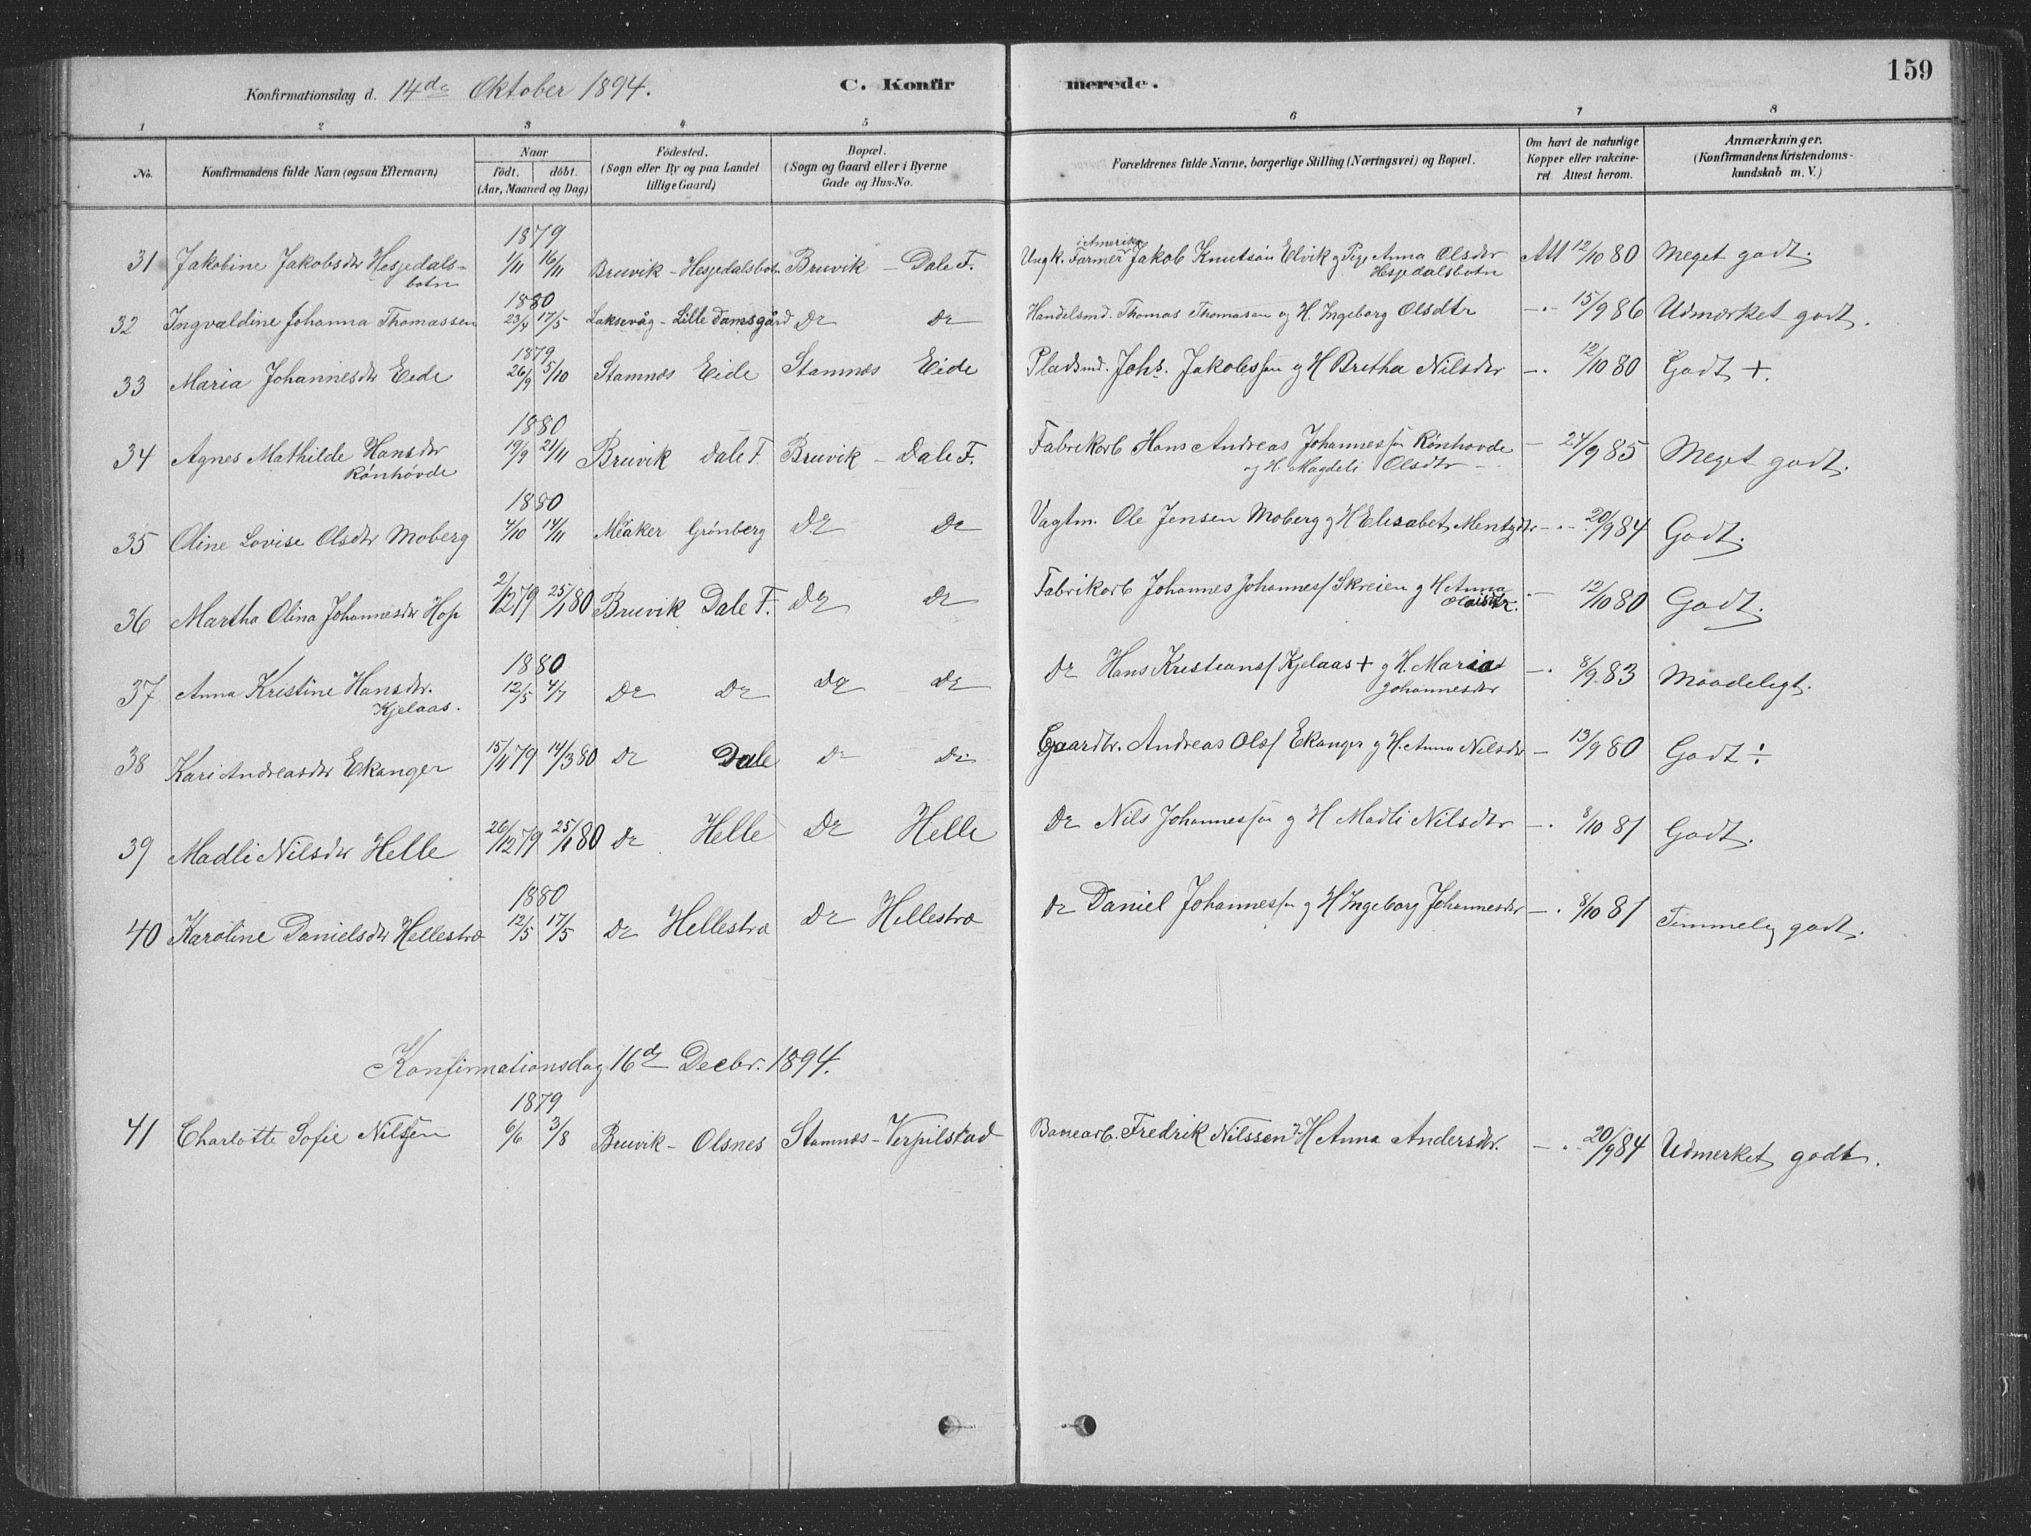 159
Konfirmationsdag d. 14de Oktober 1894. C. Konfirmerede.
1 2 3 4 5 6 7 8
No. Konfirmandens fulde Navn (ogsaa Efternavn) Naar födt. döbt. (Aar, Maaned og Dag) Födested. (Sogn eller By og paa Landet tillige Gaard) Bopæl. (Sogn og Gaard eller i Byerne Gade og Hus-No. Forældrenes fulde Navne, borgerlige Stilling (Næringsvei) og Bopæl. Om havt de naturlige Kopper eller vakcineret. Attest herom. Anmærkninger. (Konfirmandens Kristendomskundskab m. V.)
1879
31 Jakobine Jakobsdtr Hesjedalsbotn 1/11 16/11 Bruvik - Hesjedalsbotn Bruvik - Dale F. Ungk. Farmer i Amerika Jakob Knutsön Elvik og Pige Anna Olsdtr Hesjedalsbotn Att 12/10 80 Meget godt.
1880
32 Ingvaldine Johanna Thomassen 23/4 17/5 Laksevåg - Lille Damsgård Do Do Handelsmd. Thomas Thomasen og H. Ingeborg Olsdtr -.- 15/9 86 Udmærket godt.
1879
33 Maria Johannesdtr Eide 26/9 5/10 Stamnæs Eide Stamnæs Eide Pladsmd. Johs. Jakobssen og H Bretha Nilsdtr -. 12/10 80 Godt +.
1880
34 Agnes Mathilde Hansdtr Rønhøvde 19/9 21/11 Bruvik Dale F. Bruvik - Dale F. Fabrikarb Hans Andreas Johannessen Rønhovde og H. Magdeli Olsdtr - 24/9 85 Meget godt.
1880
35 Oline Lovise Olsdtr Moberg 4/10 14/11 Meaker Grönberg Do Do Vagtm. Ole Jensen Moberg og H Elisabet -.- 20/9 84 Godt.
36 Martha Olina Johannesdtr Hop 2/12 79 25/1 80 Bruvik Dale F. Do Do Fabrikarb Johannes Johanness Skreien og H Anna -. 12/10 80 Godt.
1880
37 Anna Kristine Hansdtr. Kjelaas. 12/5 4/7 Do Do Do Do Do Hans Kristians Kjelaas + og H. Maria Johannesdtr -. 8/9 83 Maadeligt.
38 Kari Andreasdtr Ekanger 15/11 79 14/3 80 Do Dale Do Do Gaardbr. Andreas Ols Ekanger og H. Anna Nilsdtr - 13/9 80 Godt ÷
39 Madli Nilsdtr Helle 26/12 79 25/1 80 Do Helle Do Helle Do Nils Johannessen og H Madli Nilsdtr -. 8/10 81 Godt.
1880
40 Karoline Danielsdtr Hellestræ 12/5 17/5 Do Hellestræ Do Hellestræ Do Daniel Johannessen og H Ingeborg Johannesdtr -. 8/10 81 Temmelig godt.
Konfirmationsdag 16de Decbr. 1894.
1879
41 Charlotte Sofie Nilssen 6/6 3/8 Bruvik - Olsnes Stamnæs - Verpilstad Banearb. Fredrik Nilssen og H Anna Andersdtr. -.- 20/9 84 Udmerket godt.